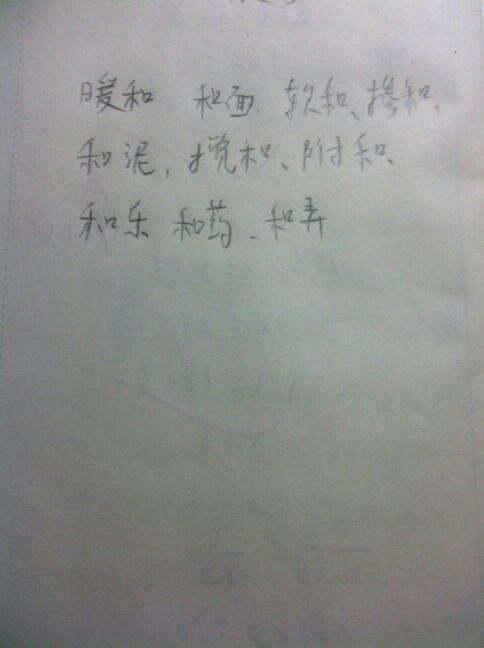 暖和 和面. 软和、掺和、
和泥, 搅和、附和、
和乐 和药、和弄